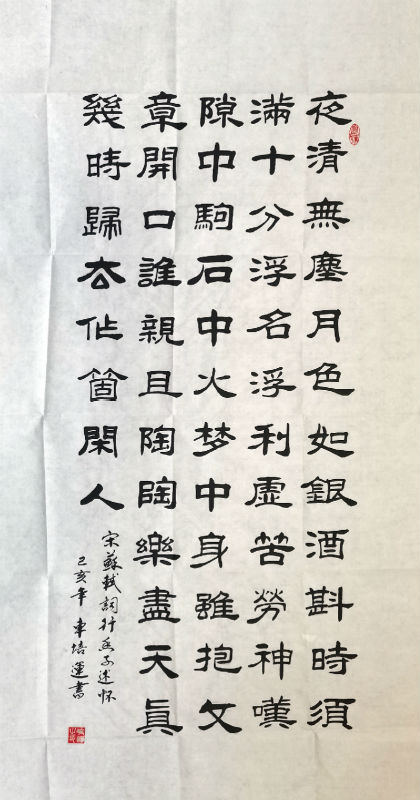 夜清無塵月色如銀酒斟時須
滿十分浮名浮利虛苦勞神嘆
隙中駒石中火梦中身雖抱文
章開口誰親且陶陶樂盡天真
幾時歸去作箇閑人
宋蘇軾詞行香子述怀
己亥年車培運書